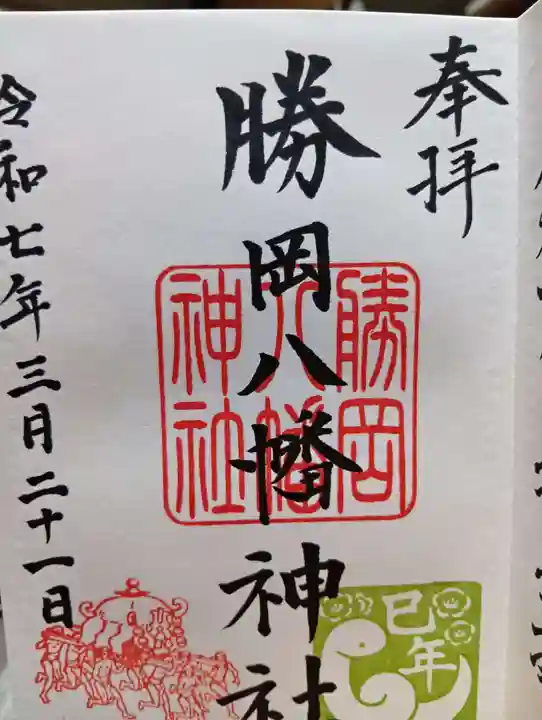 奉拝
勝岡八幡神社
勝岡
八幡
神社
令和七年三月二十一日
巳年